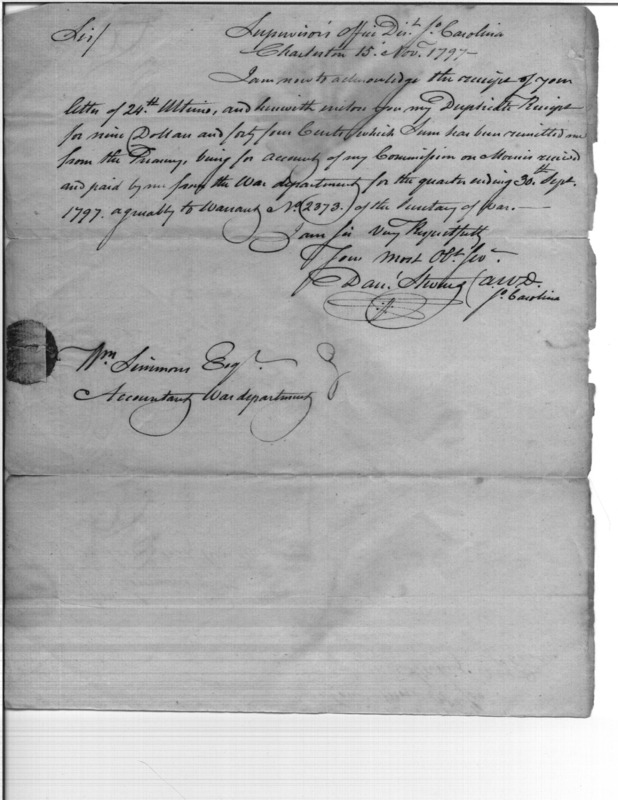 Sir/
Supervisor's office Dist. So. Carolina
Charleston 15. Novr. 1797—
I am now to acknowledge the receipt of your
letter of 24th Ultimo, and herewith enclose you my Duplicate Receipt
for nine Dollars and forty four Cents, which Sum has been remitted me
from the Treasury, being for account of my Commission on Monies received
and paid by me from the War department for the quarter ending 30th Sept.
1797. agreably to Warrant No. (2373.) of the Secretary of War.—
I am Sir Very Respectfully
Your most Obt. Servt.
Danl. Stevens
So. Carolina
Wm Simmons Esqr.
Accountant War department